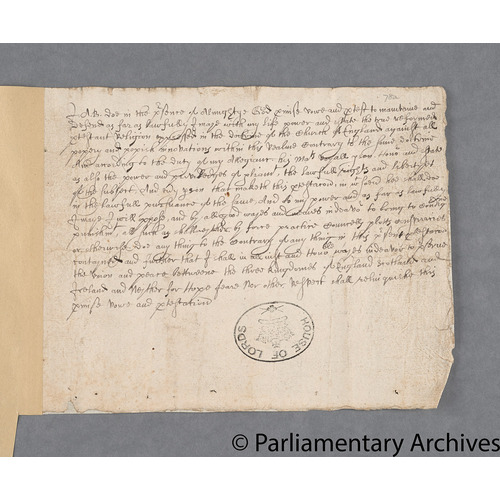 I A.B. doe in the psence of Almightye God pmise vowe and ptest to maintaine and
defend as far as lawfully I maye with my life power and state the true reformed
ptestant Religion expressed in the doctrine of the Church of England against all
popery and popish inovations within this Realme Contrary to the same doctrine
And according to the duty of my Allegiance his Mats Royall pson honor and state
as also the power and priviledges of pliamt the lawfull rights and libertyes
of the subiect And evy pson that maketh this ptestation in whatsoever he shall doe
in the lawfull pursuance of the same And to my power and as far as lawfully
I maye I will oppose and by all good wayes and meanes indeavor to bring to Condigne
punishmt all such as shall either by force practice Councells plotts Conspiracies
or otherwise doe any thing to the Contrary of any thing in this psent ptestation
Contayned and further that I shall in all iust and Honoble wayes indeavor to pserve
the Union and peace betweene the three Kingdomes of England Scotland and
Ireland and Neither for Hope feare Nor other Respect shall relinquishe this
pmise vowe and ptestation
HOUSE OF LORDS
© Parliamentary Archives